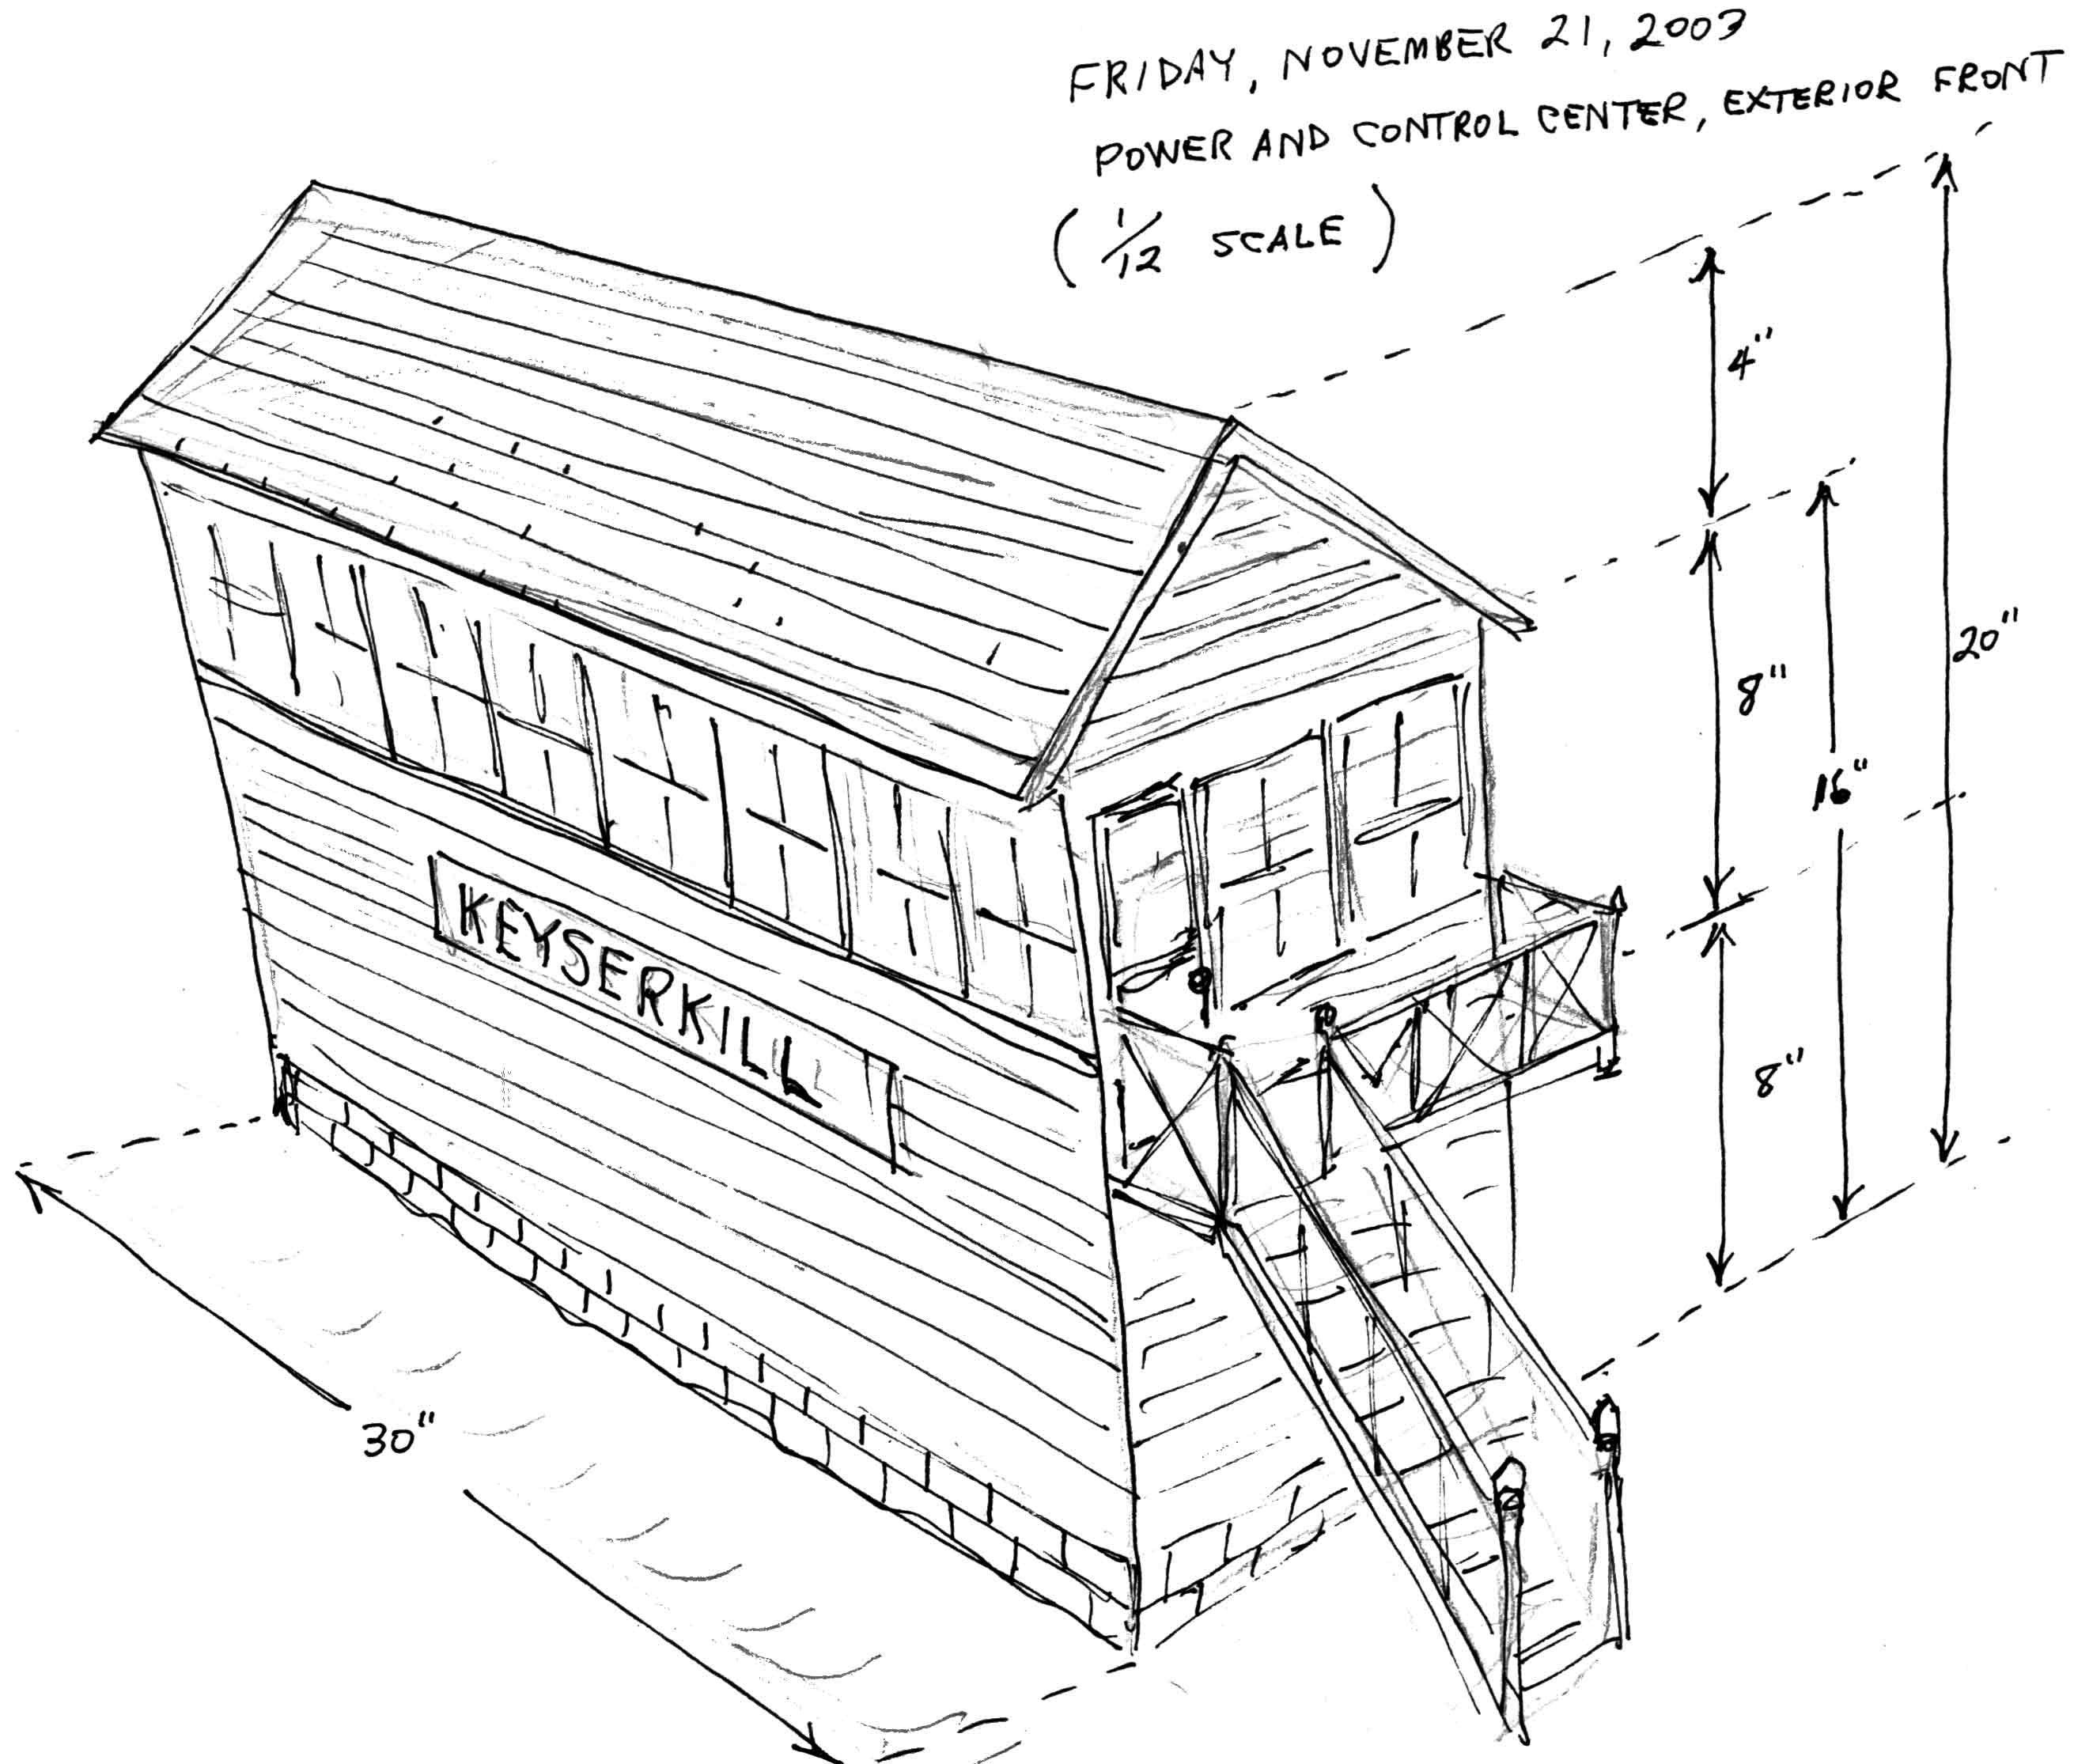 FRIDAY, NOVEMBER 21, 2003
POWER AND CONTROL CENTER, EXTERIOR FRONT
( 1/12 SCALE )
4"
8"
20"
16"
KEYSERKILL
8"
30"